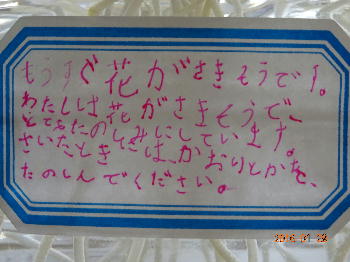 もうすぐ花がさきそうです。
わたしは花がさきそうで、
とてもたのしみにしています。
さいたときは、かおりとかを、
たのしんでください。